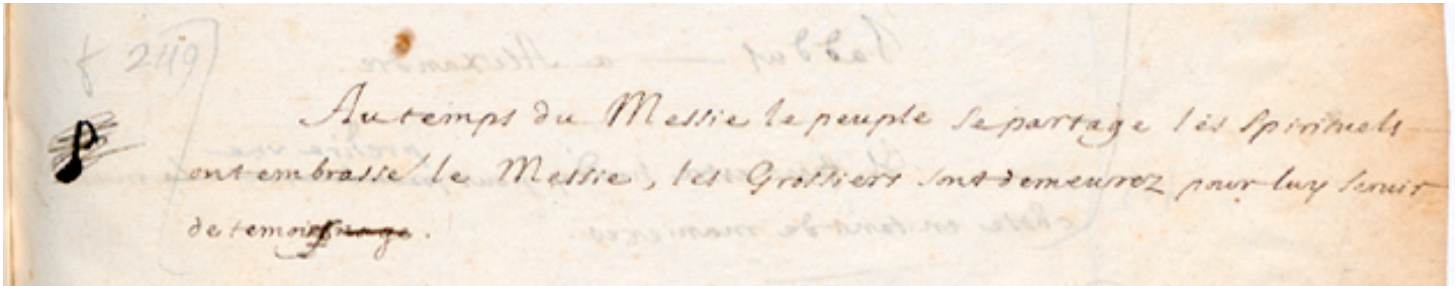 f 249
Au temps du Messie le peuple se partage les spirituels
ont embrassé le Messie, les Grossiers sont demeurez pour luy servir
de temoins.